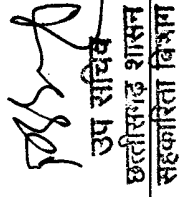 उप सचिव
छत्तीसगढ़ शासन
सहकारिता विभाग